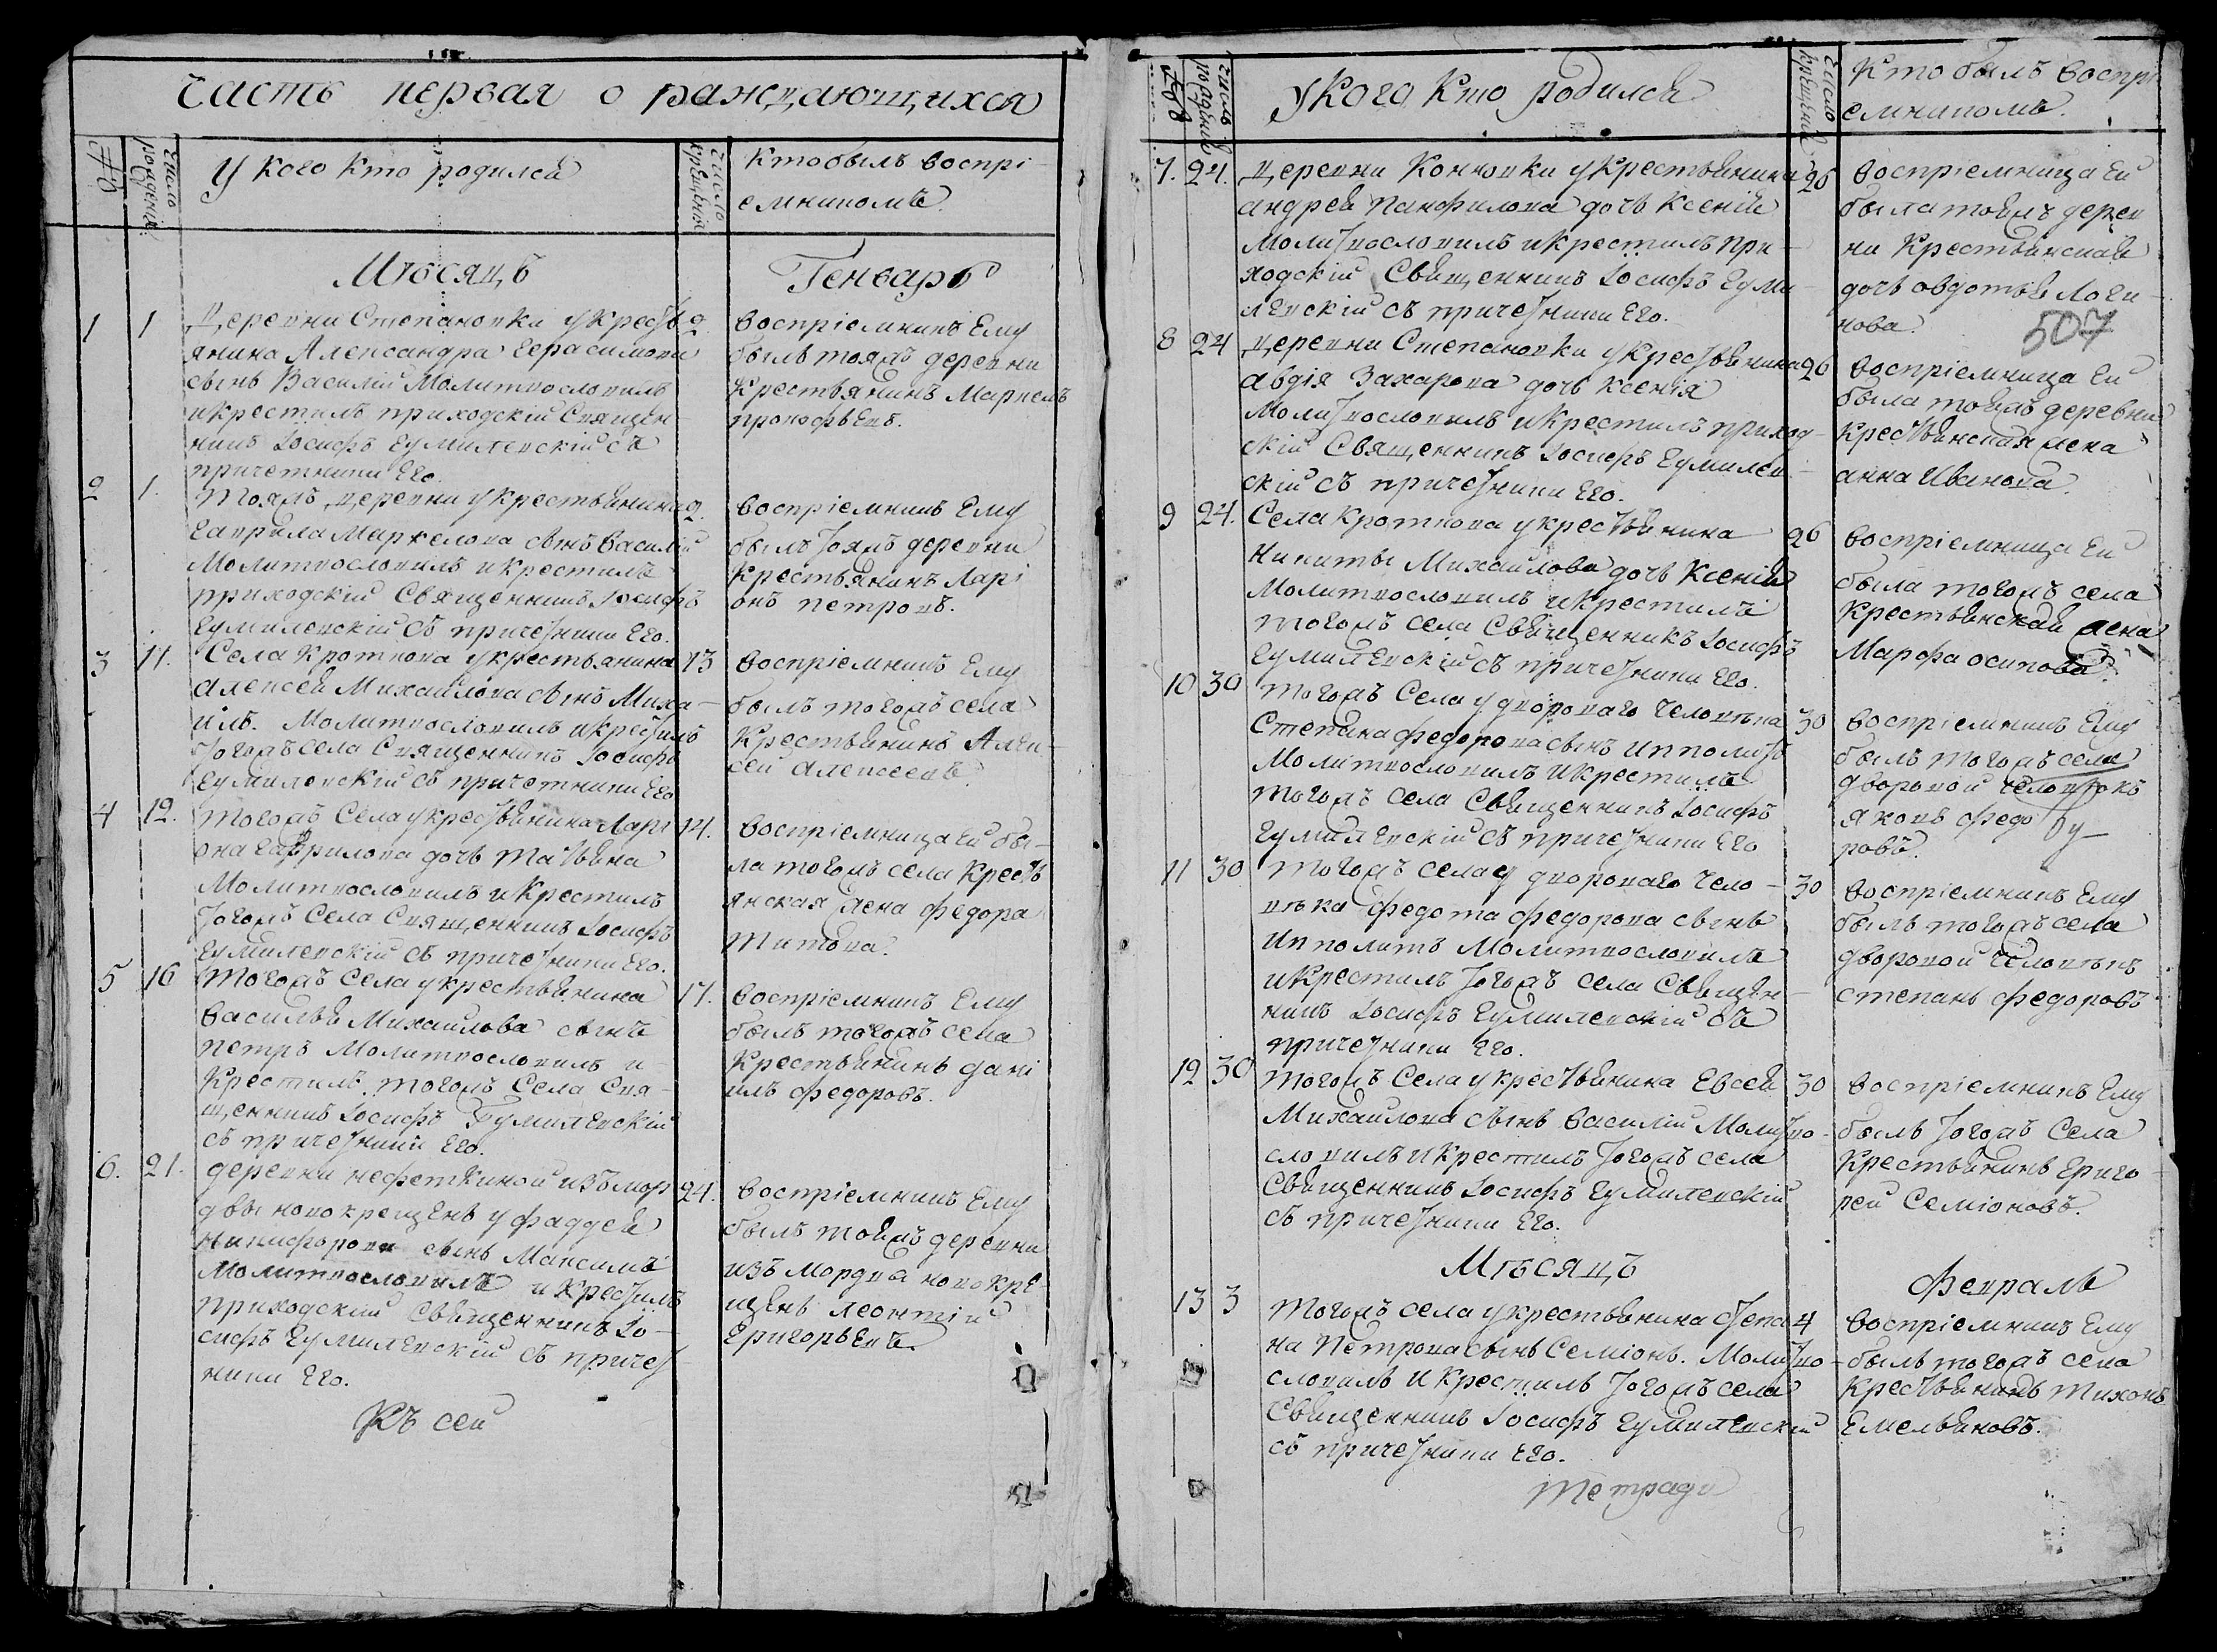 Часть первая о раждающихся
№
число рожденія
У кого кто родился
число крещенія
Кто былъ воспрі
емникомъ
Мѣсяцъ
Генварь
1 1 Деревни Степановки у крестъ 2
янина Александра Герасимова
сынъ Василій Молитвословилъ
и крестилъ приходскій Священ
никъ Іосифъ Гумилевскій съ
причетники Его.
воспріемникъ Ему
былъ тояжъ деревни
Крестьянинъ Маркелъ
прокофьевъ.
2 1. Тояжъ деревни у крестьянина 2.
Гаврила Маркелова сынъ Василій
Молитвословилъ и крестилъ
приходскій Священникъ Іосифъ
Гумилевскій съ причетники Его.
воспріемникъ Ему
былъ тояжъ деревни
Крестьянинъ Ларі
онъ петровъ.
3 11. Села Кроткова у крестьянина 13
Алексея Михайлова сынъ Миха
илъ. Молитвословилъ и крестилъ
тогожъ села Священникъ Іосифъ
Гумилевскій съ причетники Его
воспріемникъ Ему
былъ тогожъ села
Крестьянинъ Алек
сей Алексеевъ
4 12. Тогожъ Села у крестьянина Лари 14.
она Гаврилова дочь Татьяна
Молитвословилъ и крестилъ
тогожъ Села Священникъ Іосифъ
Гумилевскій съ причетники Его.
воспріемница Ей бы
ла тогожъ села Кресть
янская жена федора
Титова.
5 16 Тогожъ Села у крестьянина 17.
Василья Михайлова сынъ
петръ Молитвословилъ и
крестилъ тогожъ Села Свя
щенникъ Іосифъ Гумилевскій
съ причетники Его.
воспріемникъ Ему
былъ тогожъ села
Крестьянинъ дани
илъ федоровъ.
6. 21. деревни нефеткиной изъ мор 24.
двы новокрещенъ у фаддея
Никифорова сынъ Максимъ
Молитвословилъ и крестилъ
приходскій Священникъ Іо
сифъ Гумилевскій съ причет
ники Его.
воспріемникъ Ему
былъ тояжъ деревни
изъ мордва новокре
щенъ леонтій
Григорьевъ.
Къ сей
№
число рожденія
У кого кто родился
число крещенія
Кто былъ воспрі
емникомъ.
7. 24. Деревни Коноки у крестьянина 25
андрея панфилова дочь Ксенія
Молитвословилъ и крестилъ при
ходскій Священникъ Іосифъ Гуми
левскій съ причетники Его.
воспріемница Ей
была тояжъ дерев
ни Крестьянская
дочь овдотья Логи
нова.
507
8 24 Деревни Степановки у крестьянина 26
Авдія Захарова дочь Ксенія
Молитвословилъ и крестилъ приход
скій Священникъ Іосифъ Гумилев
скій съ причетники Его.
воспріемница Ей
была тояжъ деревни
крестьянская жена
анна Иванова.
9 24. Села Кроткова у крестьянина 26
Никиты Михайлова дочь Ксенія
Молитвословилъ и крестилъ
тогожъ села Священникъ Іосифъ
Гумилевскій съ причетники Его.
воспріемница Ей
была тогожъ села
Крестьянская жена
Марфа осипова.
10 30 Тогожъ Села у двороваго человѣка 30
Степана федорова сынъ Ипполитъ
Молитвословилъ и крестилъ
тогожъ села Священникъ Іосифъ
Гумилевскій съ причетники Его
воспріемникъ Ему
былъ тогожъ села
дворовой человѣкъ
яковъ федо
ровъ.
11 30 Тогожъ села у двороваго чело 30
вѣка федота федорова сынъ
Ипполитъ Молитвословилъ
и крестилъ тогожъ села Священ
никъ Іосифъ Гумилевскій съ
причетники Его.
воспріемникъ Ему
былъ тогожъ села
дворовой человѣкъ
степанъ федоровъ
12 30 Тогожъ Села у крестьянина Евсея 30
Михайлова сынъ Василій Молитво
словилъ и крестилъ тогожъ села
Священникъ Іосифъ Гумилевскій
съ причетники Его.
воспріемникъ Ему
былъ тогожъ Села
Крестьянинъ Григо
рей Семіоновъ.
Мѣсяцъ
февраль
13 3 Тогожъ села у крестьянина Степа 4
на Петрова сынъ Семіонъ. Молитво
словилъ и крестилъ тогожъ села
Священникъ Іосифъ Гумилевскій
съ причетники Его.
воспріемникъ Ему
былъ тогожъ села
крестьянинъ тихонъ
Емельяновъ.
Тетради